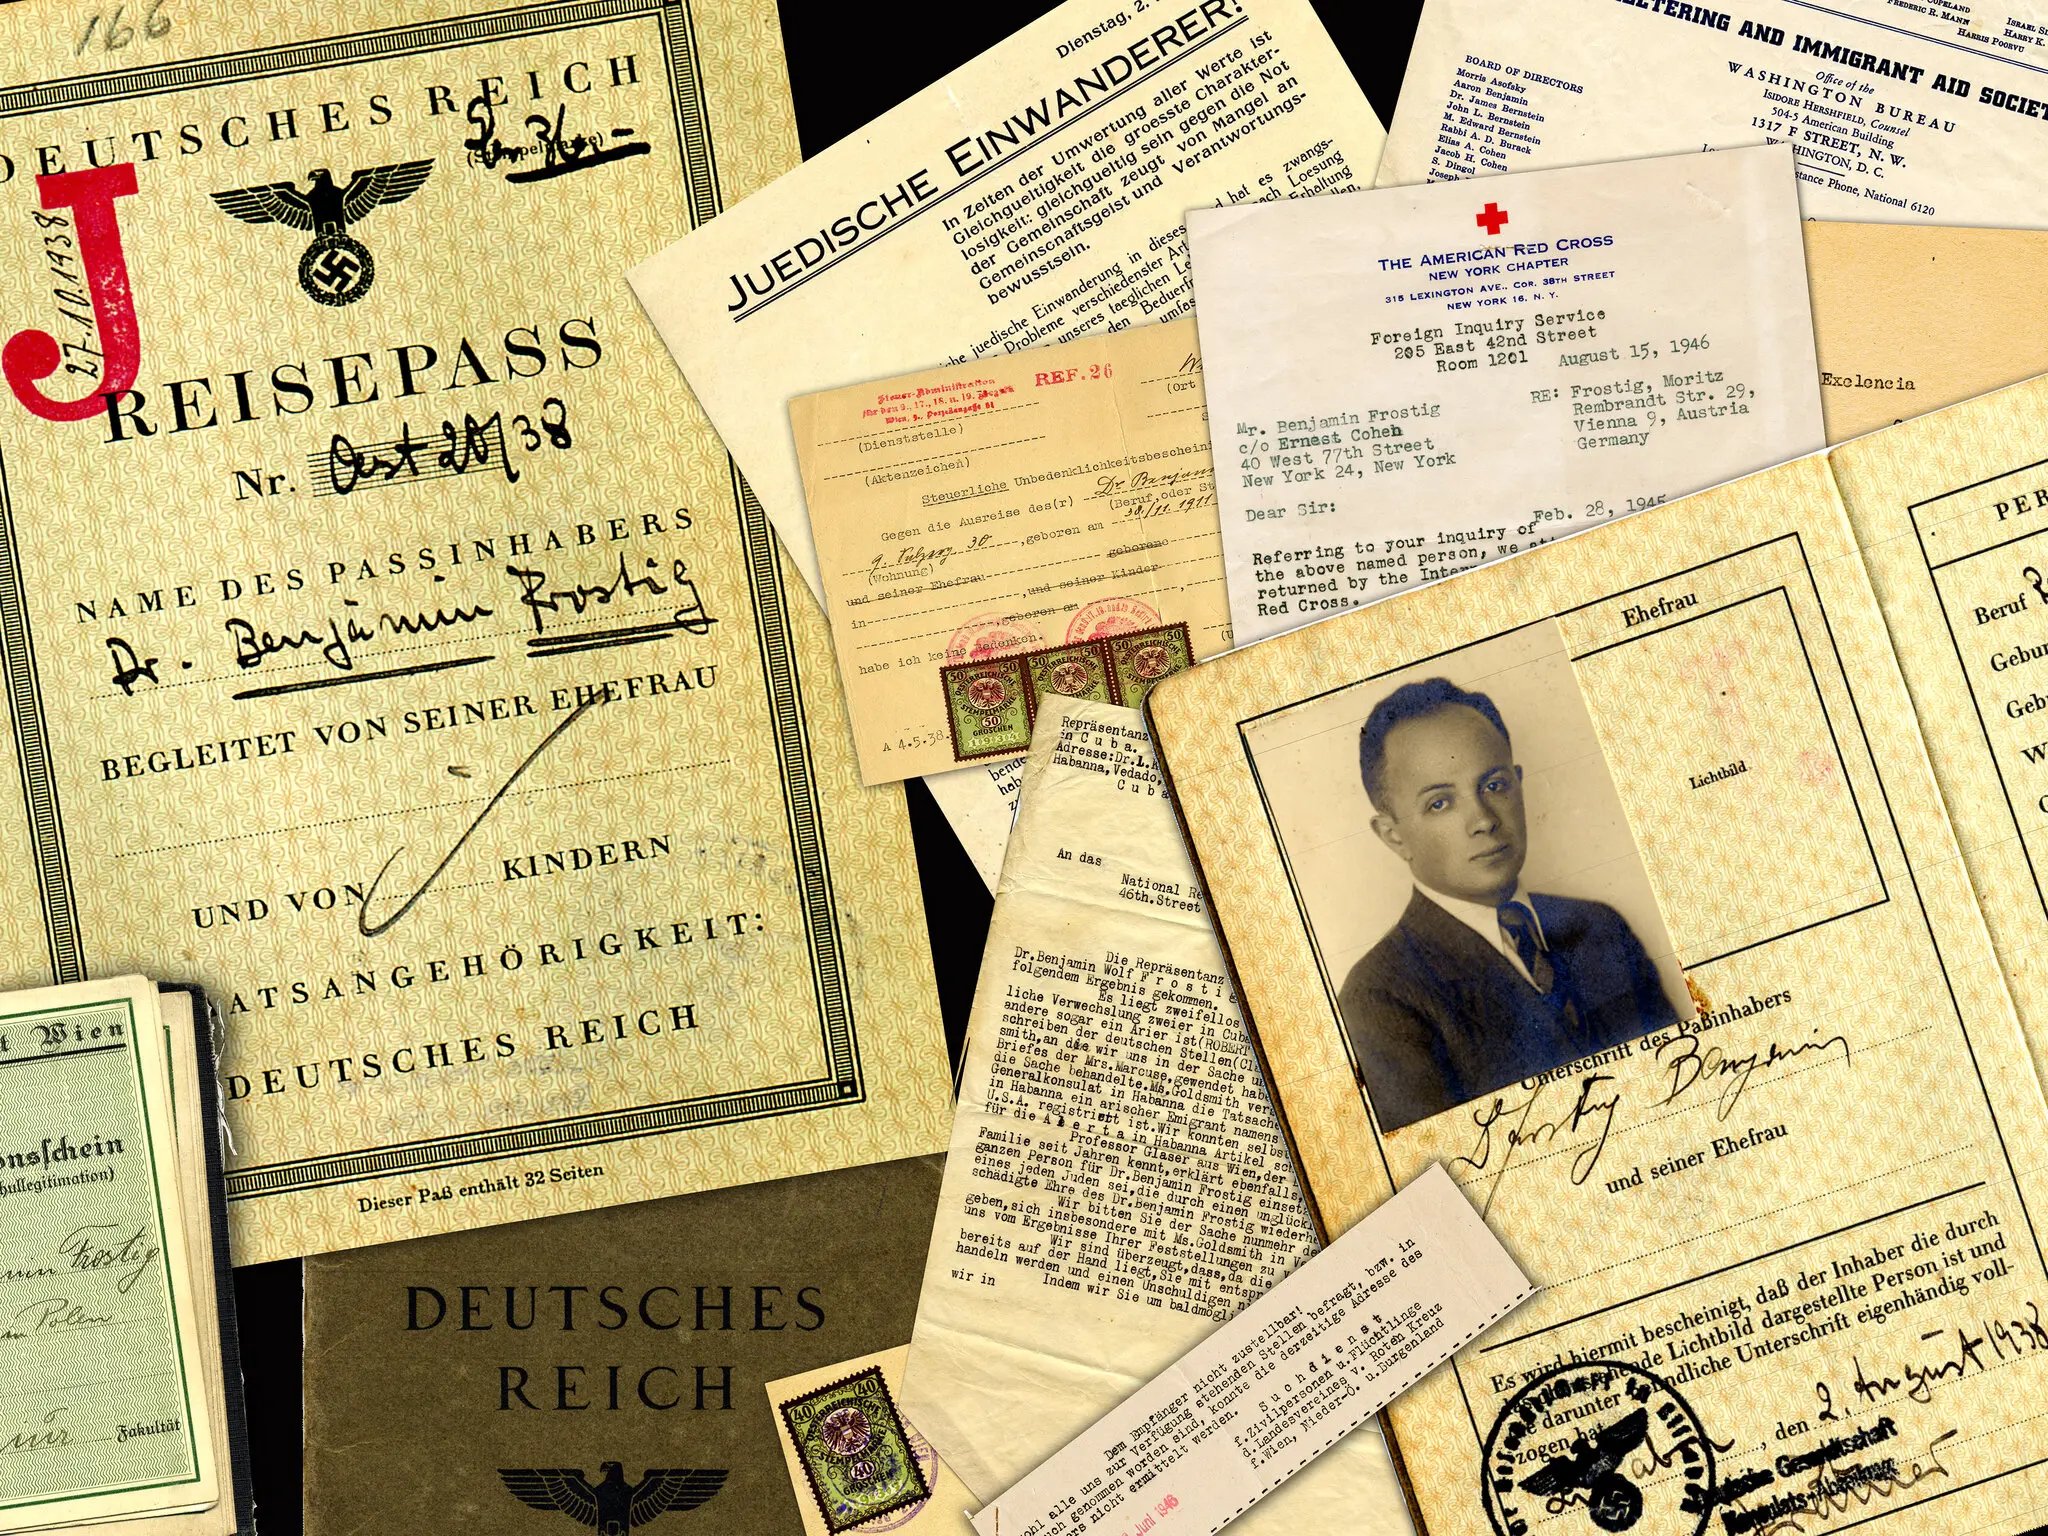 166
DEUTSCHES REICH
(Stempelmarke)
S 36.-
J
27.10.1938
REISEPASS
Nr. Oest 28/38
NAME DES PASSINHABERS
Dr. Benjamin Frostig
BEGLEITET VON SEINER EHEFRAU
UND VON KINDERN
ATSANGEHÖRIGKEIT:
DEUTSCHES REICH
Dieser Paß enthält 32 Seiten
t Wien
onsschein
Frostig
Polen
Fakultät
DEUTSCHES
REICH
Dienstag, 2.
JUEDISCHE EINWANDERER!
In Zeiten der Umwertung aller Werte ist
Gleichgueltigkeit die groesste Charakter-
losigkeit: gleichgueltig sein gegen die Not
der Gemeinschaft zeugt von Mangel an
Gemeinschaftsgeist und Verantwortungs-
bewusstsein.
d hat es zwangs-
juedische Einwanderung in dieses
Probleme verschiedenster Art
unseres taeglichen Le
den Beduerf
umfas
ach Loesung
Erhaltung
LTERING AND IMMIGRANT AID SOCIET
COPELAND
FREDERIC R. MANN
HARRIS POORVU
ISRAEL
HARRY K.
Office of the
WASHINGTON BUREAU
ISIDORE HERSHFIELD, Counsel
504-5 American Building
1317 F STREET, N. W.
WASHINGTON, D. C.
stance Phone, National 6120
BOARD OF DIRECTORS
Morris Asofsky
Aaron Benjamin
Dr. James Bernstein
John L. Bernstein
M. Edward Bernstein
Rabbi A. D. Burack
Elias A. Cohen
Jacob H. Cohen
S. Dingol
Joseph
THE AMERICAN RED CROSS
NEW YORK CHAPTER
315 LEXINGTON AVE., COR. 38TH STREET
NEW YORK 16, N. Y.
Foreign Inquiry Service
205 East 42nd Street
Room 1201
August 15, 1946
Mr. Benjamin Frostig
c/o Ernest Cohen
40 West 77th Street
New York 24, New York
RE: Frostig, Moritz
Rembrandt Str. 29,
Vienna 9, Austria
Germany
Dear Sir:
Referring to your inquiry of Feb. 28, 1945
the above named person, we
returned by the Inter
Red Cross.
Exelencia
Steuer-Administration
für den 9., 17., 18. u. 19. Bezirk
REF. 26
(Ort
(Dienststelle)
(Aktenzeichen)
Steuerliche Unbedenklichkeitsbeschein
Gegen die Ausreise des(r) Dr Benjamin
(Beruf, oder St
30 ,geboren am
(Wohnung)
und seiner Ehefrau geborene
in ,und seiner Kinder
,geboren am
habe ich keine Bedenken.
A 4.5.38.
50
ÖSTERREICHISCHE
STEMPELMARKE
50
GROSCHEN
50
50
50
Repräsentanz
in Cuba.
Adresse:Dr.L.K
Habanna, Vedado,
Cuba
An das
National Re
46th.Street
Die Repräsentanz
Dr.Benjamin Wolf Frostig
folgendem Ergebnis gekommen.
Es liegt zweifellos
liche Verwechslung zweier in Cuba
andere sogar ein Arier ist(ROBERT
schreiben der deutschen Stellen(Cla
smith,an die wir uns in der Sache un
Briefes der Mrs.Marcuse,gewendet habe
die Sache behandelte.Ms.Goldsmith vers
Generalkonsulat in Habanna die Tatsache
in Habanna ein arischer Emigrant namens
U.S.A. registriert ist.Wir konnten selbst
für die Alerta in Habanna Artikel sch
Professor Glaser aus Wien,der
Familie seit Jahren kennt,erklärt ebenfalls,
ganzen Person für Dr.Benjamin Frostig einsetz
eines jeden Juden sei,die durch einen unglückl
schädigte Ehre des Dr.Benjamin Frostig wiederhe
Wir bitten Sie der Sache nunmehr de
geben,sich insbesondere mit Ms.Goldsmith in Ve
uns vom Ergebnisse Ihrer Feststellungen zu
Wir sind überzeugt,dass,da die
bereits auf der Hand liegt,Sie mit entspr
handeln werden und einen Unschuldigen ni
wir in
Indem wir Sie um baldmögli
Ehefrau
Lichtbild
Unterschrift des Paßinhabers
Frostig Benjamin
und seiner Ehefrau
Es wird hiermit bescheinigt, daß der Inhaber die durch
Lichtbild dargestellte Person ist und
die darunter
Unterschrift eigenhändig voll-
zogen hat
, den 2. August 1938
Deutsche Gesandtschaft
Konsulats-Abteilung
PER
Beruf
Gebur
Gebu
Dem Empfänger nicht zustellbar!
ohl alle uns zur Verfügung stehenden Stellen befragt, bzw. in
uch genommen worden sind, konnte die derzeitige Adresse des
ers nicht ermittelt werden.
Suchdienst
f.Zivilpersonen u.Flüchtlinge
d.Landesvereines v. Roten Kreuz
f.Wien, Nieder-Ö. u.Burgenland
Juni 1946
40
40
ÖSTERREICHISCHE
STEMPELMARKE
40
GROSCHEN